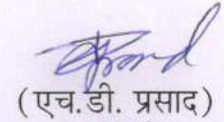 (एच.डी. प्रसाद)